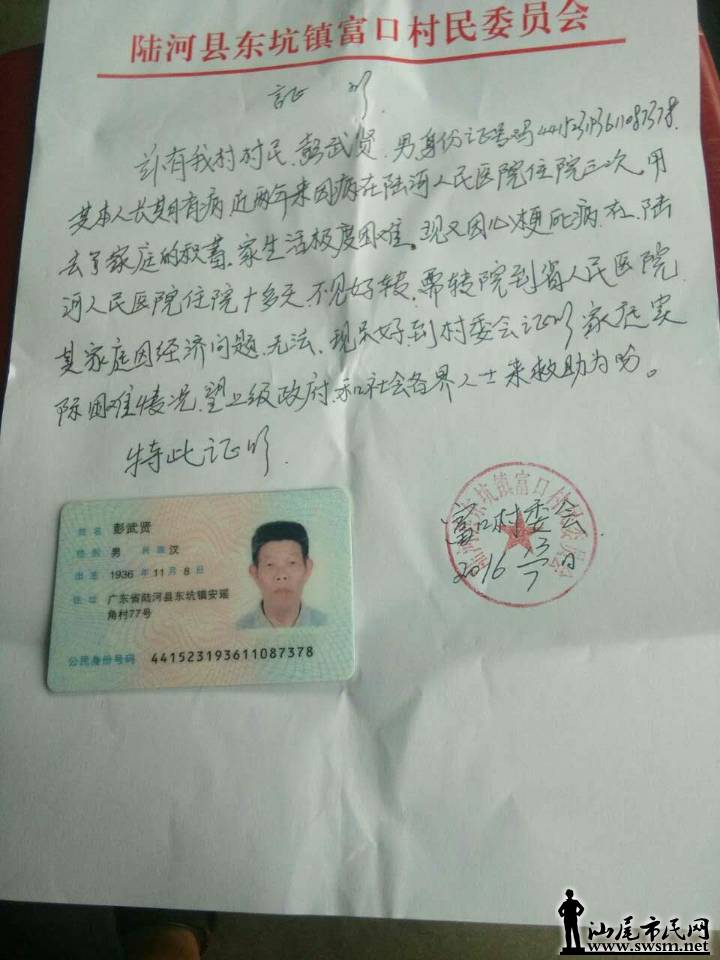 陆河县东坑镇富口村民委员会
证 明
兹有我村村民彭武贤,男,身份证号码441523193611087378.
其本人长期有病近两年来因病在陆河人民医院住院三次,用
去了家庭的积蓄、家生活极度困难。现又因心梗死病,在陆
河人民医院住院十多天,不见好转,需转院到省人民医院
其家庭因经济问题,无法、现只好到村委会证明家庭实
际困难情况,望上级政府和社会各界人士来救助为盼。
特此证明.
富口村委会
2016
姓名 彭武贤
性别 男 民族 汉
出生 1936 年 11 月 8 日
住址 广东省陆河县东坑镇安瑶
角村77号
公民身份号码 441523193611087378
汕尾市民网
www.swsm.net